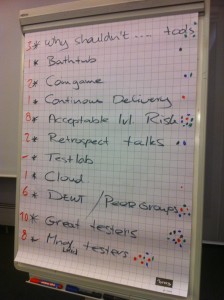 3* Why shouldn't.... tools
1* Bathtub
2* Comgame
1* Continous Delivery
8* Acceptable lvl Risk
2* Retrospect talks
-* Testlab
1* Cloud
6* DEWT / Peer Groups
10* Great testers
8* testers